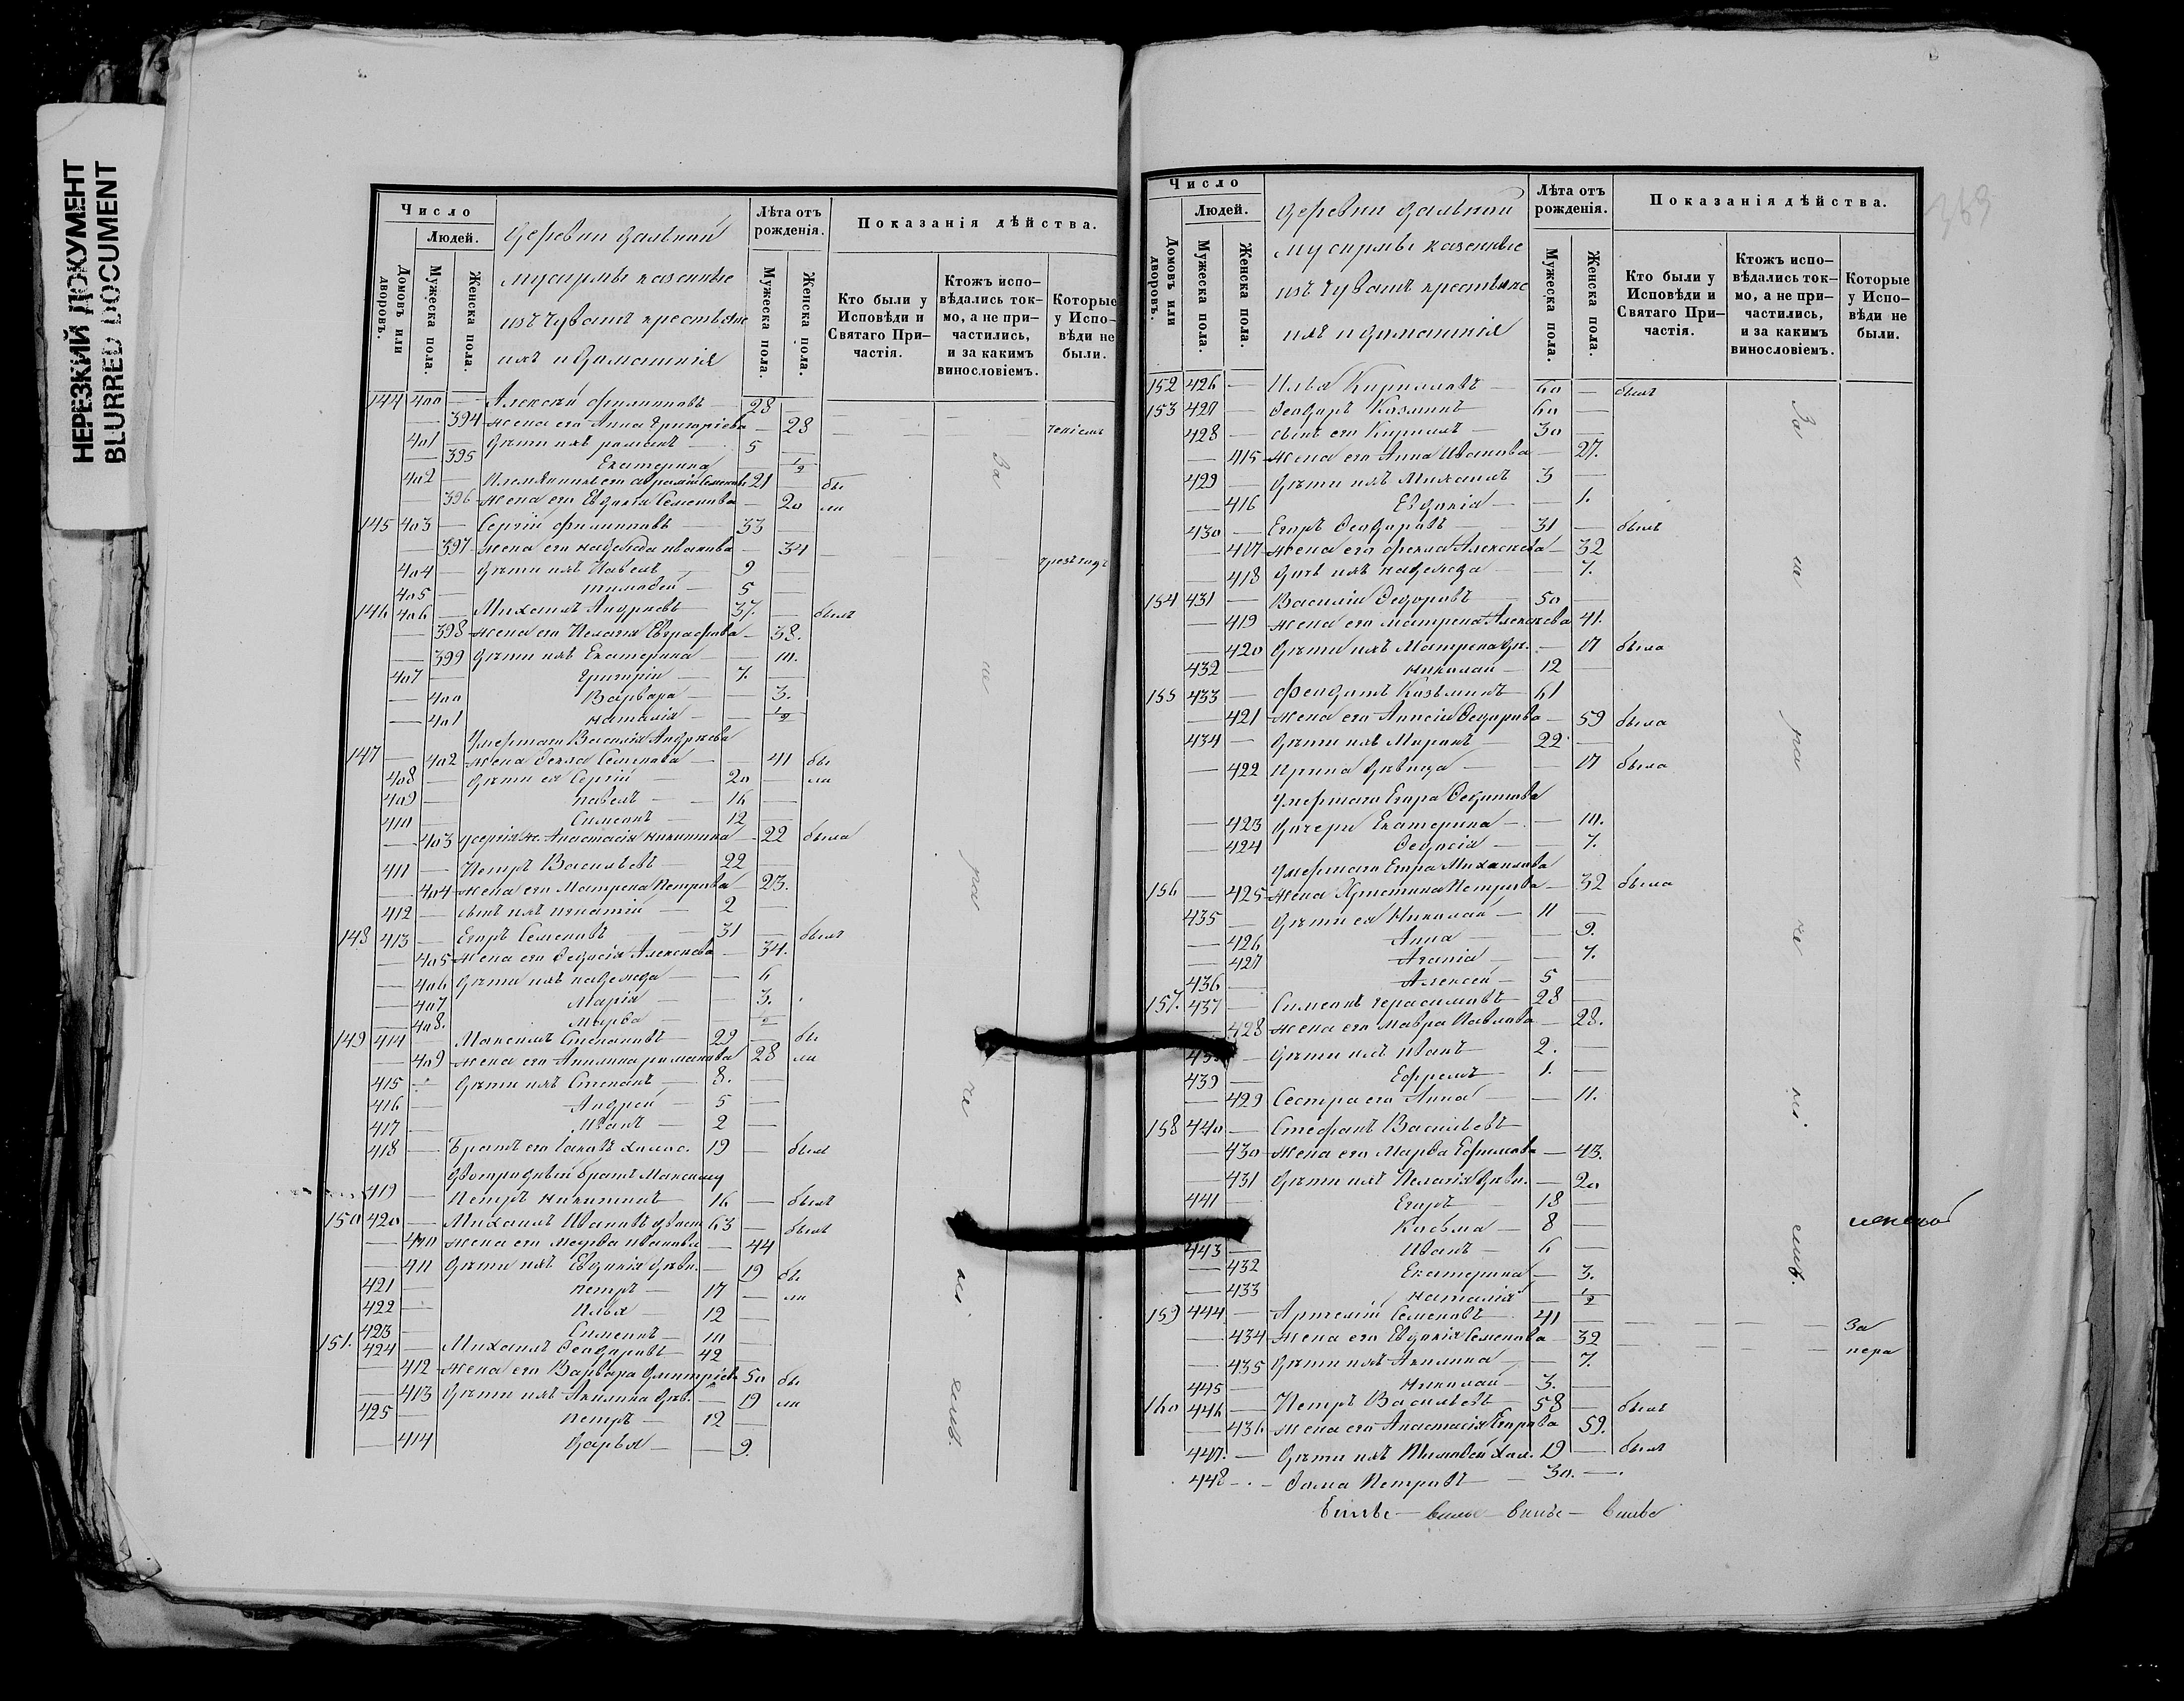 НЕРЕЗКИЙ ДОКУМЕНТ
BLURRED DOCUMENT
Число
Людей.
Домовъ или дворовъ.
Мужеска пола.
Женска пола.
Деревни Дальной
мусирмы казенные
изъ чувашъ крестьяне
ихъ и домашнія
Лѣта отъ рожденія.
Мужеска пола.
Женска пола.
Показанія дѣйства.
Кто были у Исповѣди и Святаго При-частія.
Ктожъ испо-вѣдались ток-мо, а не при-частились, и за какимъ винословіемъ.
Которые у Испо-вѣди не были.
144 400 — Алексѣй Филиповъ — 28
— 394 жена его Анна Григоріева — 28
401 — Дѣти ихъ Романъ — 5
— 395 Екатерина 1/2
402 — Племянникъ его Семеновъ 21 — бы
— 396 жена его Евдокія Семенова — 20 ли
145 403 — Сергій Филиповъ — 33
— 397 жена его Надежда Иванова — 34
404 — Дѣти ихъ Павелъ — 9 —
405 — Тимофей — 5 —
146 406 — Михаилъ Андреевъ — 37. — былъ
— 398 жена его Пелагія Евграфова — 38.
— 399 Дѣти ихъ Екатерина — 10.
407 — Григорій — 7. —
— 400 Варвара — — 3.
— 401 Наталія — — 1/2
Умершаго Василія Андреева
147 — 402 жена Фекла Семенова — 41 бы
408 — Дѣти ея Сергій — 20 — ли
409 — Павелъ — 16 —
410 — Симеонъ — 12 —
— 403 Сергія ж. Анастасія Никитина — 22 была
411 — Петръ Васильевъ — 22 —
— 404 жена его Матрена Петрова — 23.
412 — сынъ ихъ Игнатій — 2 —
148 413 — Егоръ Семеновъ — 31 — былъ
— 405 жена его Федосія Алексеева — 34.
— 406 Дѣти ихъ Надежда — — 6
— 407 Марія — — 3.
— 408. Марфа — — 1/2
149 414 — Максимъ Степановъ — 29 — бы
— 409 жена его Акилина Романова 28 ли
415 — Дѣти ихъ Степанъ — 8. —
416 — Андрей — 5 —
417 — Иванъ — 2 —
418 — Братъ его Іаковъ холос. 19 — былъ
Двоюродный братъ Максиму
419 — Петръ Никитинъ — 16 — былъ
150 420 — Михаилъ Ивановъ 63 — былъ
— 410 жена его Марфа Иванова — 44
— 411 Дѣти ихъ Евдокія дѣви. — 19 бы
421 — Петръ — 17 — ли
422 — Илья — 12 —
423 — Симеонъ — 10 —
151. 424 — Михаилъ Феодоровъ — 42 —
— 412 жена его Варвара Дмитріева 50 бы
— 413 Дѣти ихъ Акилина дѣв. — 19 ли
425 — Петръ — 12 —
— 414 Дарья — — 9.
чрезъ годъ
За
Число
Людей.
Домовъ или дворовъ.
Мужеска пола.
Женска пола.
Деревни Дальной
мусирмы казенные
изъ чувашъ крестьяне
ихъ и домашнія
Лѣта отъ рожденія.
Мужеска пола.
Женска пола.
Показанія дѣйства.
Кто были у Исповѣди и Святаго При-частія.
Ктожъ испо-вѣдались ток-мо, а не при-частились, и за какимъ винословіемъ.
Которые у Испо-вѣди не были.
369
152 426 — Илья Кириловъ — 60 — былъ
153 427 — Феодоръ Козминъ — 60 —
428 — сынъ его Кирилъ — 30 —
— 415 жена его Анна Иванова — 27.
429 — Дѣти ихъ Михаилъ 3 —
— 416 Евдокія — — 1.
430 — Егоръ Феодоровъ — 31 — былъ
— 417 жена его Фекла Алексеева — 32
— 418 Дочь ихъ Надежда — — 7.
154 431 — Василій Федоровъ — 50 —
— 419 жена его Матрена Алексеева 41.
— 420 Дѣти ихъ Матрена дѣ. — 17 была
432 — Николай — 12 —
155 433 — Феодотъ Козьминъ — 61
— 421 жена его Анисія Федорова — 59 была
434 — Дѣти ихъ Миронъ — 22 —
— 422 Ирина дѣвица — — 17 была
Умершаго Егора Федотова
— 423 Дочери Екатерина — — 10.
— 424 Федосія — — 7.
Умершаго Егора Михаилова
156 — 425 жена Христина Петрова — 32 была
435 — Дѣти ея Николай — 11 —
— 426 Анна — — 9.
— 427 Агапія — — 7.
436 — Алексей — 5 —
157. 437 — Симеонъ Герасимовъ — 28 —
— 428 жена его Мавра Павлова — 28.
— Дѣти ихъ Иванъ — 2. —
439 — Ефремъ — 1. —
— 429 Сестра его Анна — — 11.
158 440 — Стефанъ Васильевъ —
— 430 жена его Марфа Ефимова — 43.
— 431 Дѣти ихъ Пелагія дѣви. — 20
441 — Егоръ — 18 —
Козьма — 8 —
443 — Иванъ — 6 —
— 432 Екатерина — 3.
— 433 Наталія — 1/2
159 444 — Артемій Семеновъ — 41 —
— 434 жена его Евдокія Семенова — 32 За
— 435 Дѣти ихъ Акилина — — 7. пера
445 — Николай — 3. —
160 446 — Петръ Васильевъ — 58 — былъ
— 436 жена его Анастасія Егорова 59.
447. — Дѣти ихъ Тимофей хол. 19 — былъ
448 — Фома Петровъ — 30. —
За